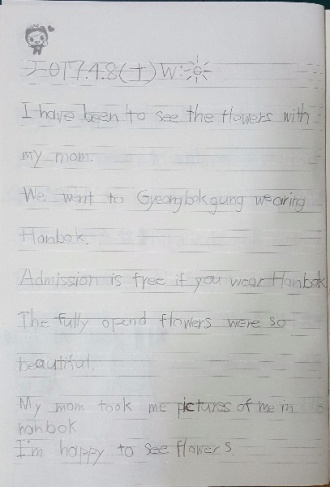 2017.4.8(土) W:
I have been to see the flowers with
my mom.
We want to Gyeongbokgung wearing
Hanbok.
Admission is free if you wear Hanbok
The fully opend flowers were so
beautiful.
My mom took me pictures of me in
hanbok
I'm happy to see flowers